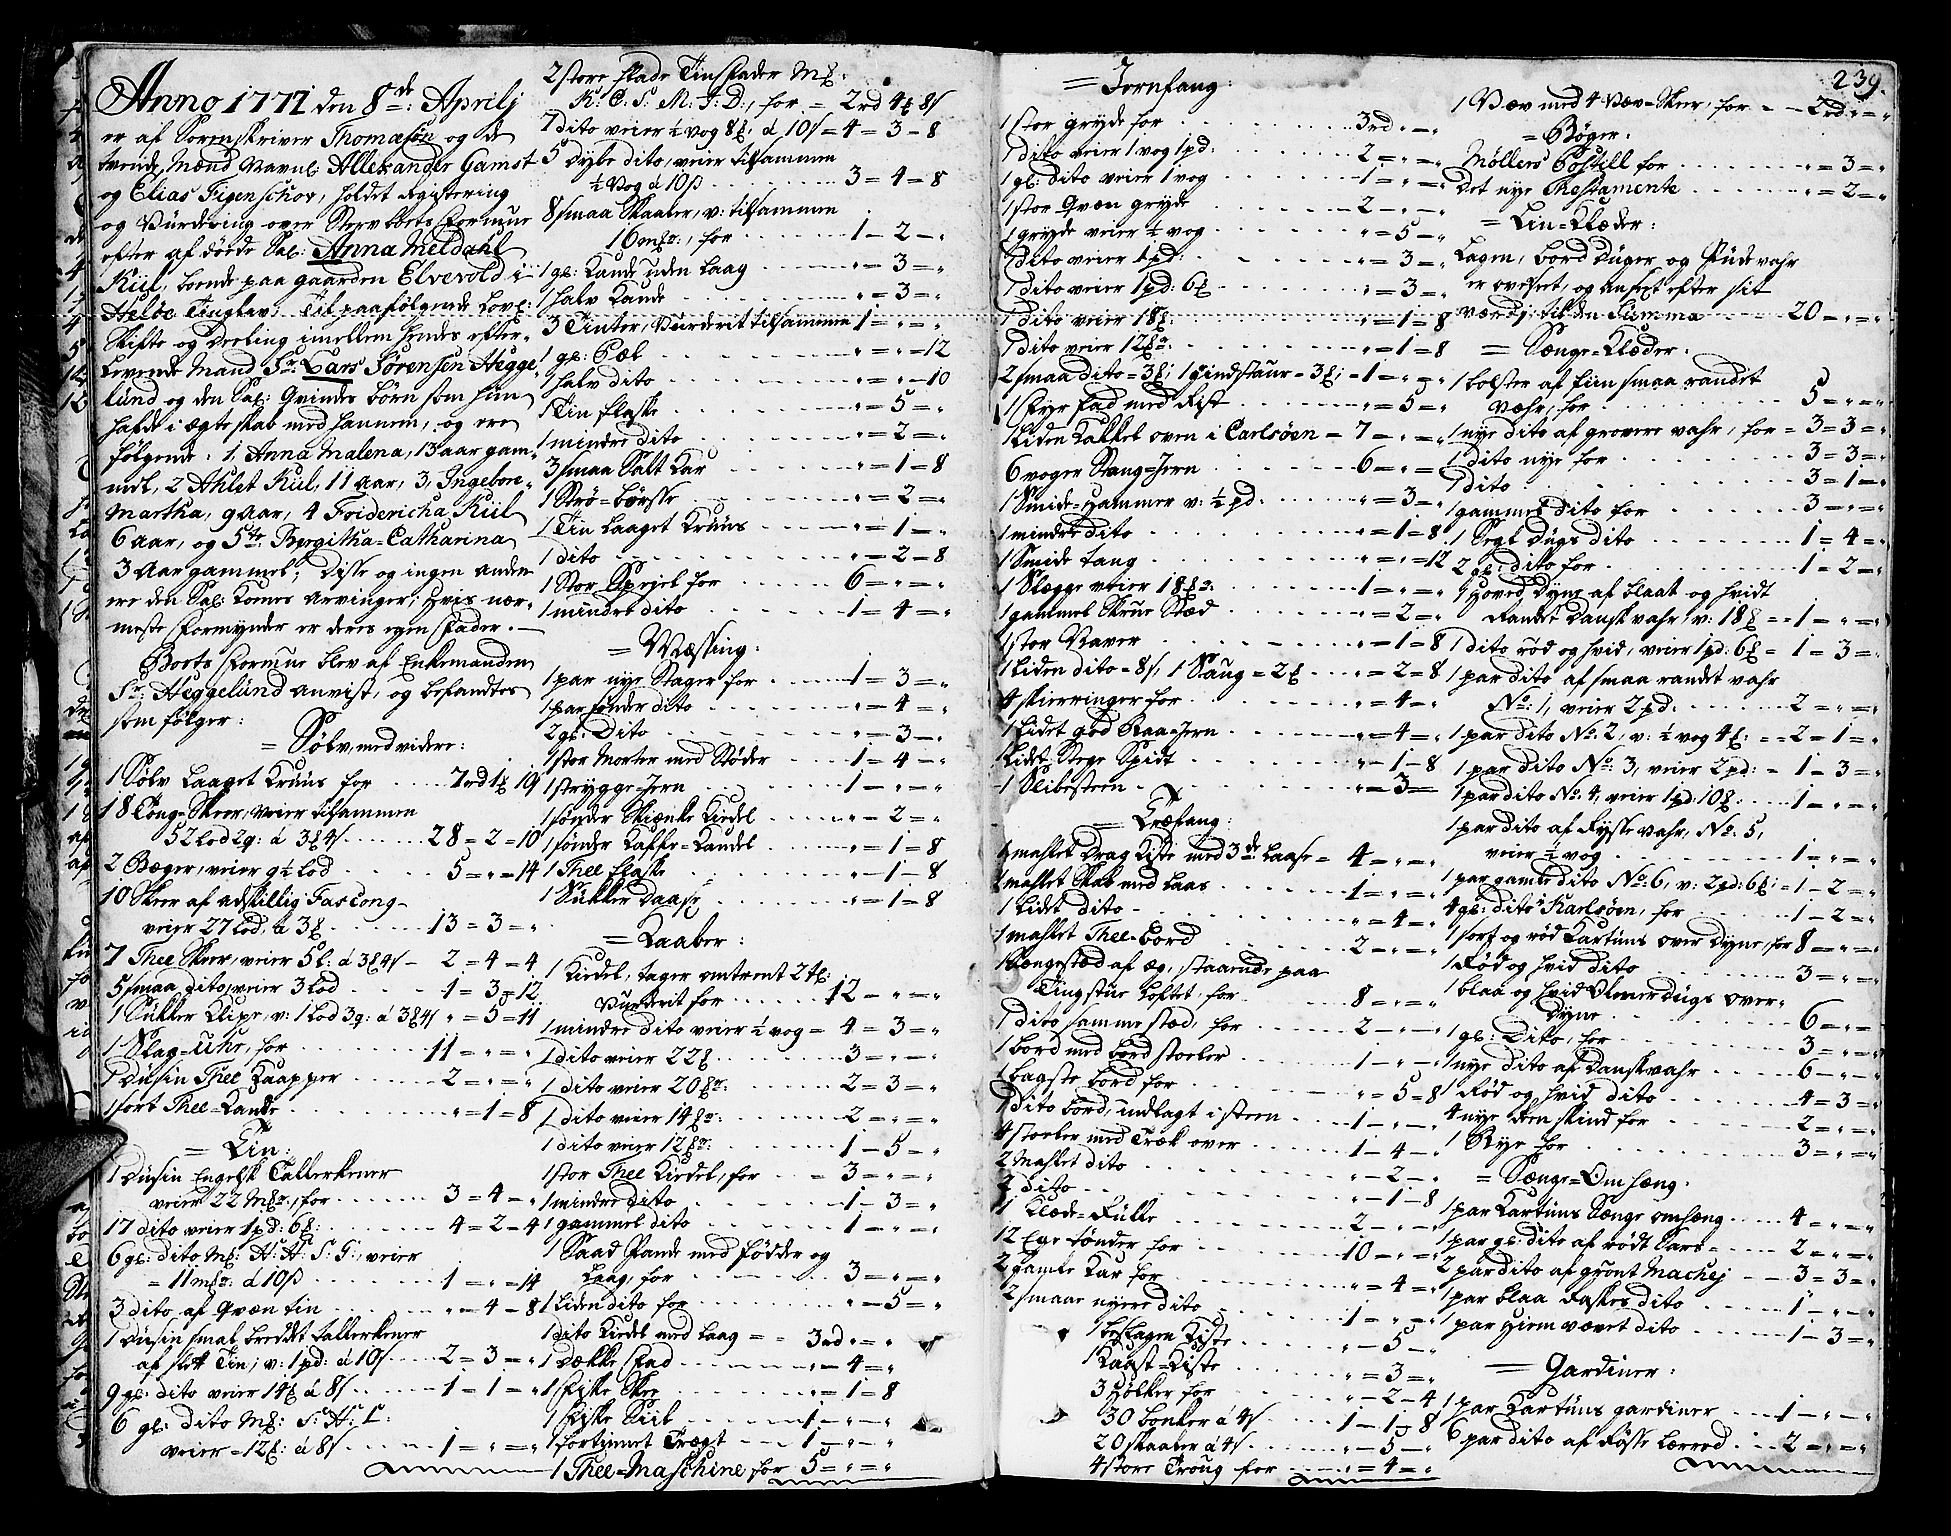 Anno 1777 den 8de: Aprilj
er af Sorenskriver Thomasön og de
tvende Mænd Navnl: Allexander Gamst
og Elias Figenschov, holdet Registering
og Vurdering over Sterv boets Formue
efter af döede Sal: Anna Meldahl
Kiil, boende paa gaarden Elvevold i
Helöe Tinglav, Til paafölgende Lovl:
Skifte og Deeling imellem hendes efter-
Levende Mand Sr: Lars Sörensen Hegge
lund og den Sal: Qvindes börn som hun
hafde i ægteskab med hannem, og ere
fölgende: 1. Anna Malena, 13 aar gam-
mel, 2 Ahlet Kiil, 11 aar, 3. Ingebore-
Martha, 9 aar, 4 Fridericha Kiil
6 aar, og 5te Bergitha-Catharina
3 Aar gammel; Disse og ingen anden
ere den Sal: Kones Arvinger; hvis nær-
meste Formynder er deres egen Fader.
Boets Formue blev af Enkemanden
Sr. Heggelund anvist, og befandtes
som fölger:
= Sölv, med videre:
1 Sölv Laaget Kruus for 7rd 1 19
18 Cong-Skeer, veier tilsammen
52 Lod 2q: á 3 4s 28 = 2 = 10
2 Bæger, veier 9½ Lod 5 = " = 14
10 Skeer af adskillig Fascong
veier 27 Lod, á 3 13 = 3 = "
7 Thee Skeer, veier 5 l: á 3 4s 2 = 4 = 4
5 smaa dito, veier 3 Lod 1 = 3 = 12
1 Sukker Klipe, v: 1 Lod 3q: á 3 4s " = 5 = 11
1 Slag-uhr, for 11 = " = "
1 Dusin Thee Kaapper 2 = " = "
1 sort Thee-Kande " = 1 = 8
= Tin:
1 Dusin Engelsk Tallerkener
veier 22 Mkr: for 3 = 4 = "
17 dito veier 1 pd: 6 4 = 2 = 4
6 gl: dito M: A: H: S: F:, veier
= 11 mkr: á 10s 1 = " = 14
3 dito af Qvæn tin " = 4 = 8
1 Dusin smal breddet tallerkener
af slet Tin, v: 1 pd: á 10s 2 = 3 = "
9 gl: dito veier 14 á 8s 1 = 1 = "
6 gl: dito M: S: H: L:
veier = 12: á 8s 1 = " = "
2 store flade Tin Fader M:
K: C: S: M: I: D:, for = 2rd 4 8s
7 dito veier ½ vog 8, á 10s = 4 = 3 = 8
5 dybe dito, veier tilsammen
½ Vog á 10s 3 = 4 = 8
8 smaa Skaaler, v: tilsammen
16 mkr:, for 1 = 2 = "
1 gl: Kande uden Laag " = 3 = "
1 halv Kande " = 3 = "
3 Tinter, Vurderit tilsammen 1 = " = "
1 gl: Pæl " = " = 12
1 halv dito " = " = 10
1 Tin flaske " = 5 = "
1 mindre dito " = 2 = "
3 smaa Salt Kar " = 1 = 8
1 Strö-börsse " = 2 = "
1 Tin Laaget Kruus " = 1 = "
1 dito " = 2 = 8
1 Stor Spejel for 6 = " = "
1 mindre dito 1 = 4 = "
= Messing:
1 par nye Stager for 1 = 3 = "
1 par sönder dito " = 4 = "
2 gl: Dito " = 3 = "
1 stor Morter med Stöder 1 = 4 = "
1 strygge-Jern 1 = " = "
1 sönder Skienke Kiedel " = 2 = "
1 sönder Kaffe-Kandel " = 1 = 8
1 Thee flaske " = 1 = 8
1 Sukker Daase " = 1 = 8
= Kaaber:
1 Kiedel, tager omtrent 2 t:
Vurderit for 12 = " = "
1 mindre dito veier ½ vog = 4 = 3 = "
1 dito veier 22 3 = " = "
1 dito veier 20 2 = 3 = "
1 dito veier 14 2 = " = "
1 dito veier 12 1 = 5 = "
1 stor Thee Kiedel, for 3 = " = "
1 mindre dito 1 = 3 = "
1 gammel dito 1 = " = "
1 Saad Pande med Födder og
Laag, for 3 = " = "
1 Liden dito for " = 5 = "
1 dito Kiedel med Laag = 3rd " = "
1 Dække Fad " = 4 = "
1 Fiske Skee " = 1 = 8
1 Fiske Siil 1 = " = "
1 fortinnet Tregt 1 = " = "
1 Thee-Maschine for 5 = " = "
239.
= Jernfang:
1 stor gryde for 3rd " = "
1 dito veier 1 vog 1 pd: 2 = " = "
1 gl: dito veier 1 vog 1 = " = "
1 stor Qvæn gryde 2 = " = "
1 gryde veier ½ vog " = 5 = "
1 dito veier 1 pd: " = 3 = "
1 dito veier 1 pd: 6 " = 3 = "
1 dito veier 18: " = 1 = 8
1 dito veier 12 " = 1 = 8
2 smaa dito = 3; 1 Findstaur = 3; = 1 = " = "
1 Fyr fad med Rist " = 5 = "
1 Liden Kakkel oven i Carlsöen = 7 = " = "
6 voger Stang-Jern 6 = " = "
1 Smide-Hammer v: ½ pd: " = 3 = "
1 mindre dito " = 1 = 8
1 Smide tang " = " = 12
1 Slægge veier 18 1 = " = "
1 gammel Skrue Stæd " = 2 = "
1 stor Naver " = 1 = 8
1 Liden dito = 8s, 1 Saug = 2 " = 2 = 8
4 skierringer for " = 4 = "
1 Lidet god Raa-Jern " = 4 = "
1 Lidet Stege Spidt " = 1 = 8
1 Slibesteen " = 3 = "
= Træfang:
1 mahlet Drag Kiste med 3de Laase = 4 = " = "
1 mahlet Skab med Laas 1 = " = "
1 Lidet dito " = 4 = "
1 mahlet Thee-Bord 2 = " = "
1 Sengested af eg, staaende paa
Tingstue Loftet, for 8 = " = "
1 dito samme sted, for 2 = " = "
1 bord med bord stoeler 1 = " = "
1 bagste bord for " = 5 = 8
1 dito bord, indlagt i steen 1 = " = "
4 stoeler med Træk over 1 = 4 = "
2 Mahlet dito " = 2 = "
2 dito " = 1 = 8
1 Klæde-Rulle 2 = " = "
12 Ege tönder for 10 = " = "
2 gamle Kar for " = 4 = "
2 smaae nyere dito 1 = " = "
1 beslagen Kiste " = 5 = "
1 Kaast-Kiste " = 3 = "
3 Holker for " = 2 = 4
30 bonker á 4s 1 = 1 = 8
20 skaaler á 4s " = 5 = "
4 store Troug for " = 4 = "
1 Væv med 4 Væv-Skeer, for = 2rd " = "
= Böger:
Möllers Postill for " = 3 = "
Det nye Thestamente " = 2 = "
= Lin-Klæder:
Lagen, bord Duger og Pudevahr
er overseet, og ansat efter sit
værdj, til den Summa 20 = " = "
= Senge-Klæder:
1 bolster af fiin smaa randet
Vahr, for 5 = " = "
1 nye dito af grovere vahr, for = 3 = 3 = "
1 dito nye for 3 = 3 = "
1 dito 3 = 1 = "
1 gammel dito for 3 = " = "
1 Segl Dugs dito 1 = 4 = "
2 gl: dito for 1 = 2 = "
1 Hoved Dyne af blaat og hvidt
Randet Dansk vahr, v: 18 = 1 = " = "
1 dito röd og hvid, veier 1 pd: 6 = 1 = 3 = "
1 par dito af smaa randet vahr
No: 1, veier 2 pd: 2 = " = "
1 par dito No: 2, v: ½ vog 4: = 2 = 1 = "
1 par dito No: 3, veier 2 pd: = 1 = 3 = "
1 par dito No: 4, veier 1 pd: 10: 1 = " = "
1 par dito af Rysse vahr, No: 5,
veier ½ vog 1 = " = "
1 par gamle dito No: 6, v: 2 pd: 6: = 1 = 2 = "
4 gl: dito i Karlsöen, for 1 = 2 = "
1 sort og röd Kartuns over Dyne, for 8 = " = "
1 Röd og hvid dito 3 = " = "
1 blaa og hvid Olmerdugs over-
Dyne 6 = " = "
1 gl: Dito, for 3 = " = "
1 nye dito af Danskvahr 6 = " = "
1 Röd og hvid dito 4 = 3 = "
4 nye Reenskind for 2 = " = "
1 Rye for 3 = " = "
= Senge-Omhæng:
1 par Kartuns Senge omhæng 4 = " = "
1 par gl: dito af rödt Sars 2 = " = "
2 par dito af grönt Machej 3 = 3 = "
1 par blaa Raskes dito 1 = " = "
1 par Hiem vævet dito 1 = 3 = "
= Gardiner:
1 par Kartuns gardiner 1 = " = "
6 par dito af Rysse Lærred 2 = " = "